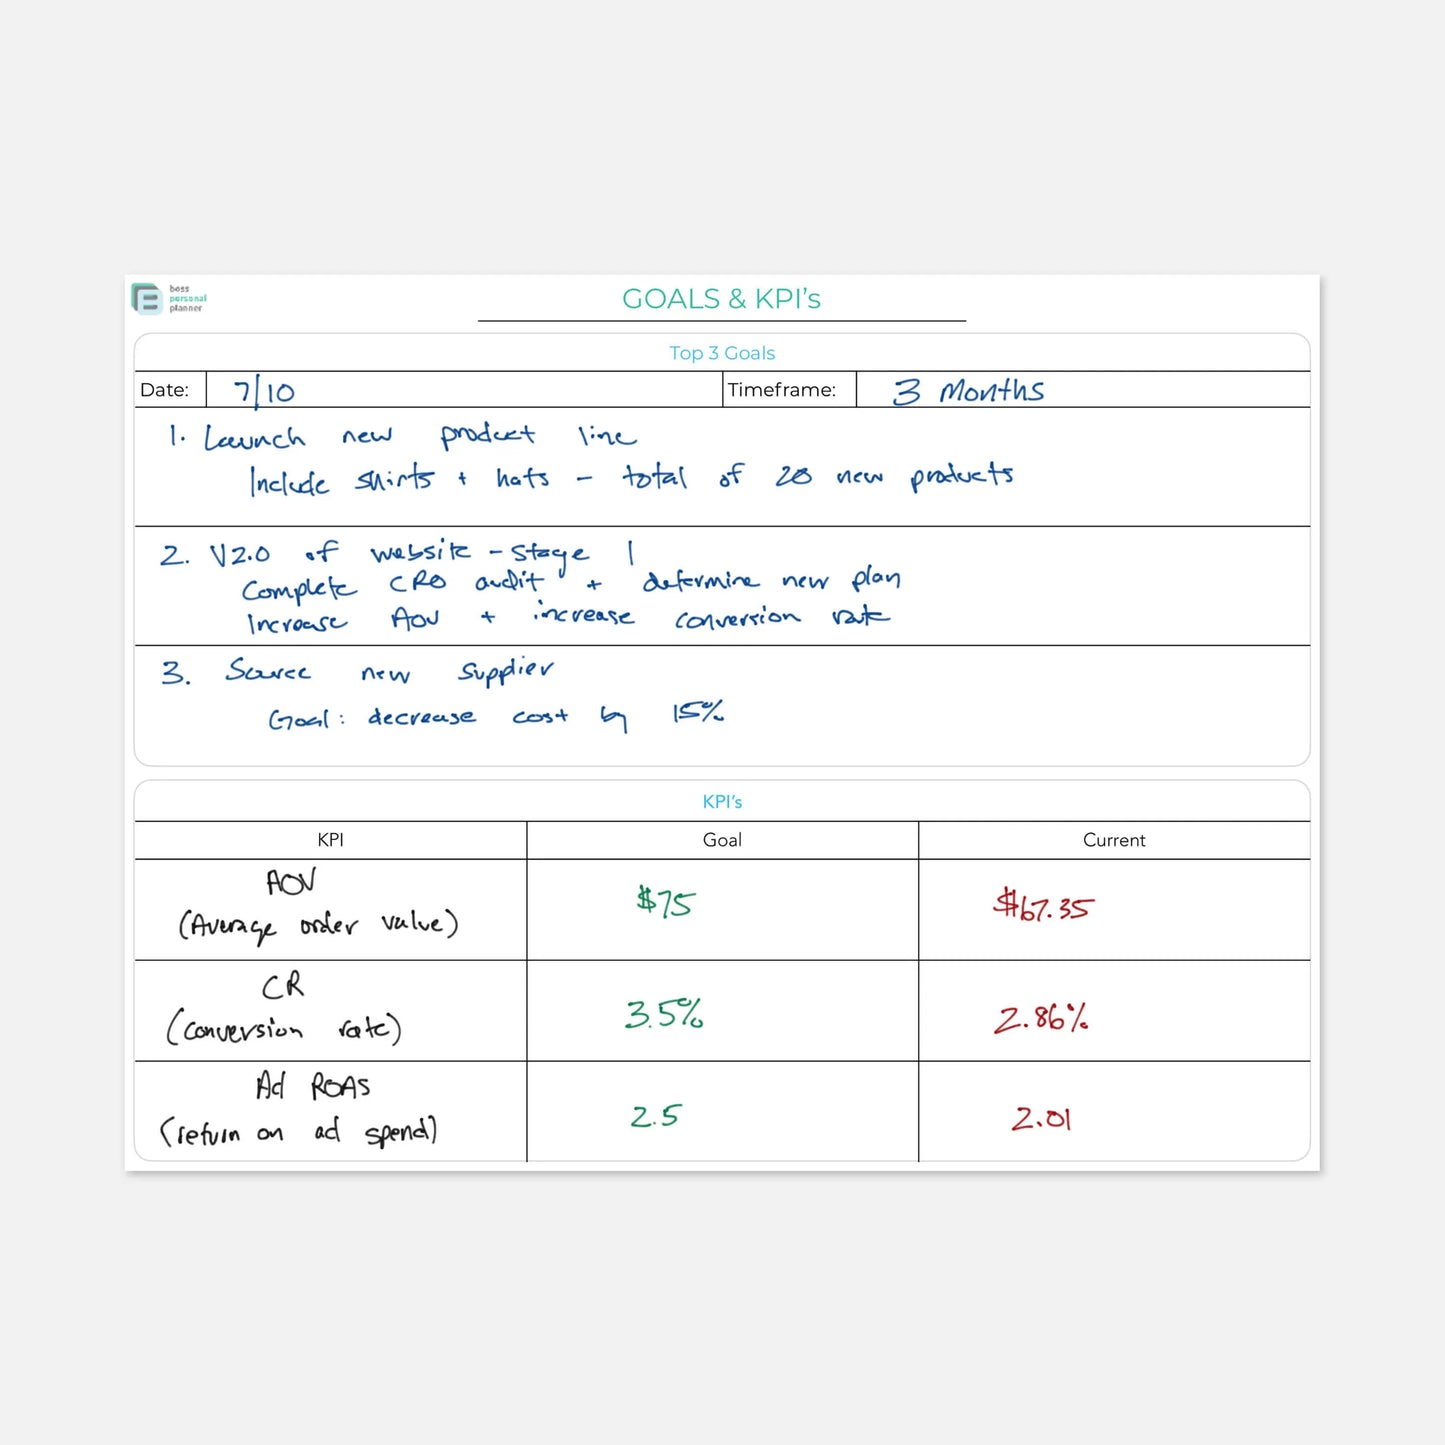 boss
personal
planner
GOALS & KPI's
Top 3 Goals
Date: 7/10 Timeframe: 3 Months
1. Launch new product line
Include shirts + hats - total of 20 new products
2. V2.0 of website - stage 1
Complete CRO audit + determine new plan
Increase AOV + increase conversion rate
3. Source new supplier
Goal: decrease cost by 15%
KPI's
KPI Goal Current
AOV
(Average order value) $75 $67.35
CR
(conversion rate) 3.5% 2.86%
Ad ROAS
(return on ad spend) 2.5 2.01